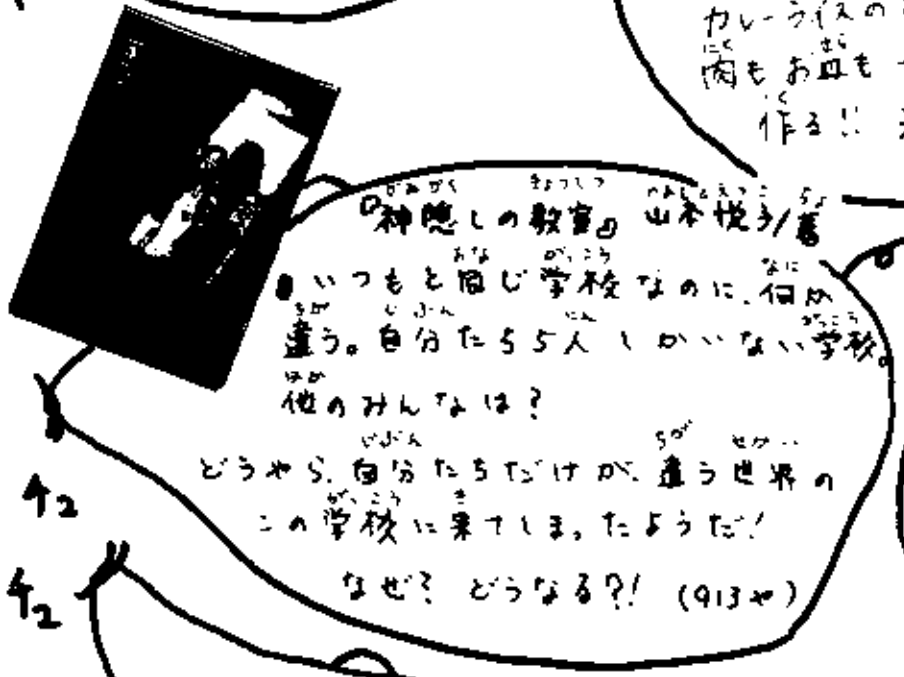 カレーライスの
肉もお皿も
作る!!
『神隠しの教室』 山本悦子/著
いつもと同じ学校なのに、何か
違う。自分たち5人しかいない学校。
他のみんなは?
どうやら、自分たちだけが、違う世界の
この学校に来てしまったようだ!
なぜ? どうなる?! (913や)